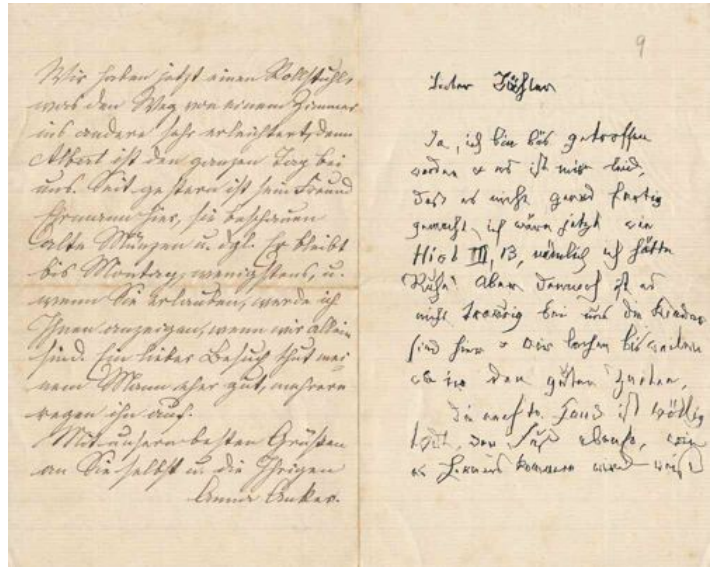 Wir haben jetzt einen Rollstuhl,
was den Weg von einem Zimmer
ins andere sehr erleichtert, denn
Albert ist den ganzen Tag bei
uns. Seit gestern ist sein Freund
Ehrmann hier, sie beschauen
alte Münzen u. dgl. Er bleibt
bis Montag, wenigstens, u.
wenn Sie erlauben, werde ich
Ihnen anzeigen, wenn wir allein
sind. Ein lieber Besuch thut mei-
nem Mann eher gut, mehrere
regen ihn auf.
Mit unsern besten Grüßen
an Sie selbst u. die Ihrigen
Anna Anker.
9
Lieber
Ja, ich bin bös getroffen
worden u es ist mir leid,
dass es nicht grad fertig
gemacht, ich wäre jetzt wie
Hiob III, 13, nämlich ich hätte
Ruhe. Aber dennoch ist es
nicht traurig bei uns die Kinder
sind hier u wir lachen bisweilen
wie in den guten Zeiten.
Die rechte Hand ist völlig
der Fuß ebenso, wie
es kommen wird weiß